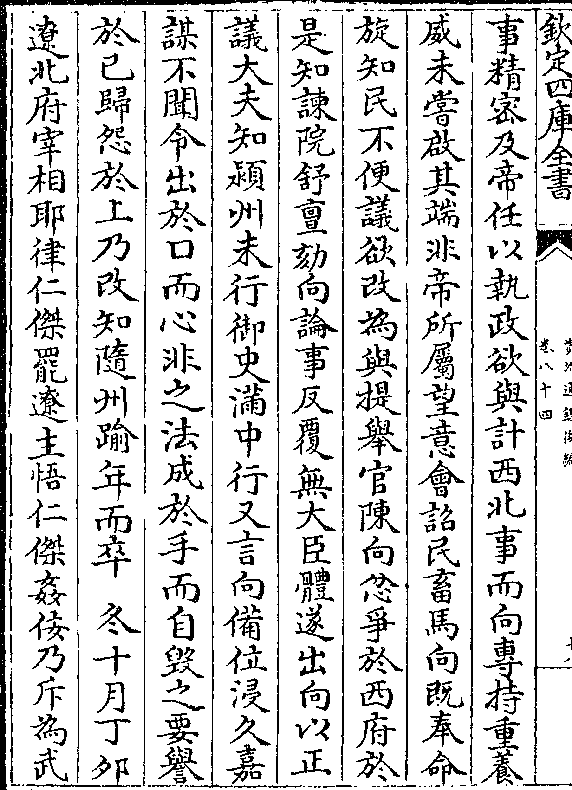 欽定四庫全書
資治通鑑後編
卷八十四
事精密及帝任以執政欲與計西北事而向專持重養
威未嘗啟其端非帝所屬望意會詔民畜馬向既奉命
旋知民不便議欲改為與提舉官陳向忿爭於西府於
是知諫院舒亶劾向論事反覆無大臣體遂出向以正
議大夫知潁州未行御史滿中行又言向備位浸久嘉
謀不聞令出於口而心非之法成於手而自毀之要譽
於己歸怨於上乃改知隨州踰年而卒　冬十月丁卯
遼北府宰相耶律仁傑罷遼主悟仁傑姦佞乃斥為武